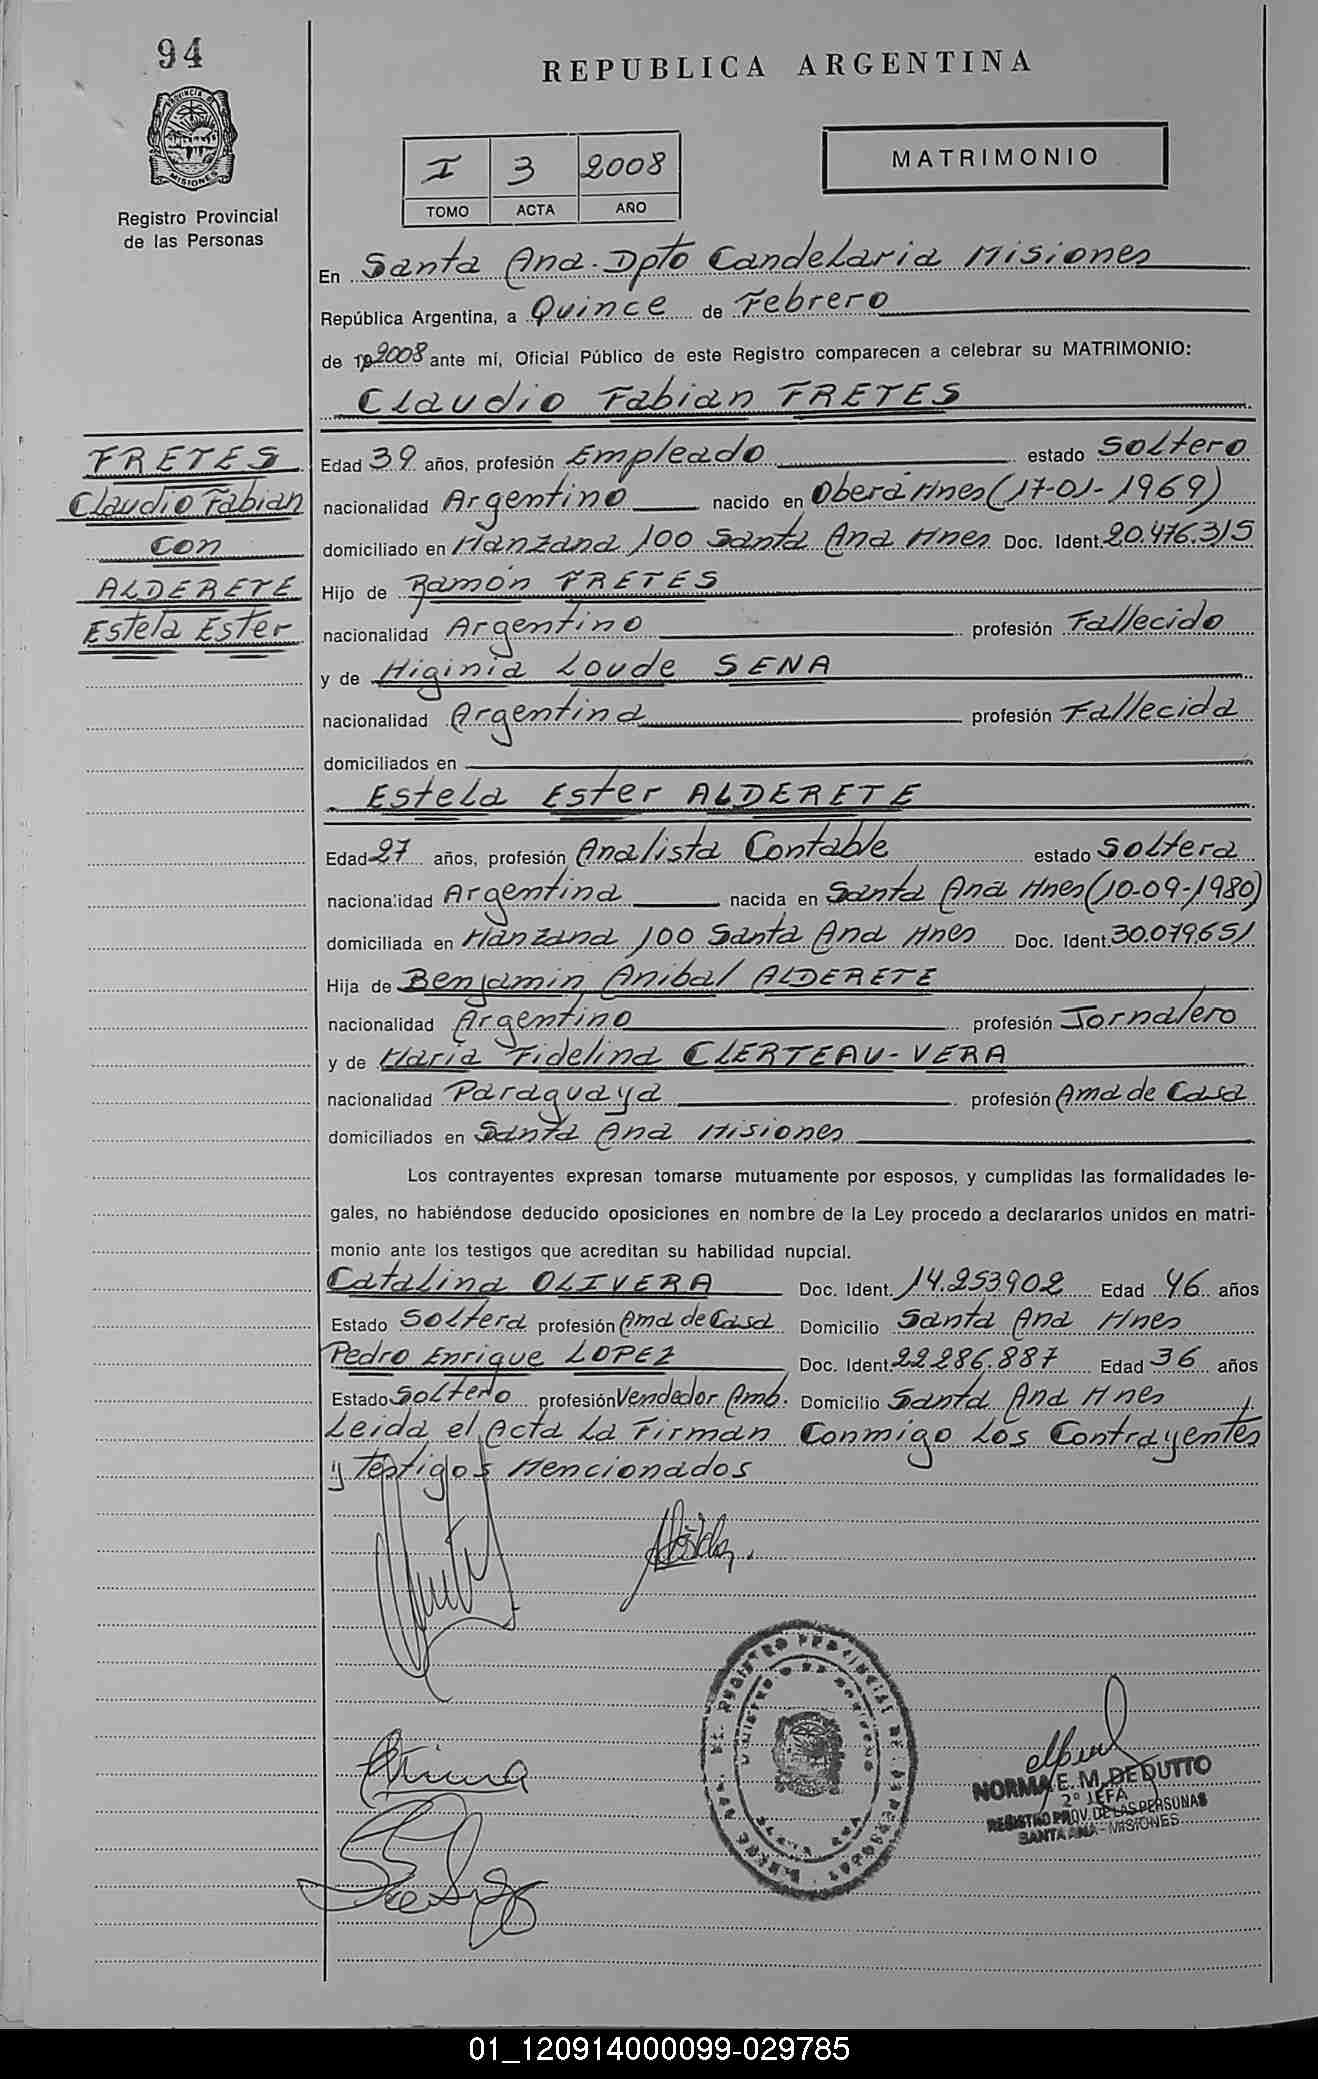 94
REPUBLICA ARGENTINA
PROVINCIA DE
MISIONES
Registro Provincial
de las Personas
I 3 2008
TOMO ACTA AÑO
MATRIMONIO
En Santa Ana. Dpto Candelaria Misiones
República Argentina, a Quince de Febrero
de 19 2008 ante mí, Oficial Público de este Registro comparecen a celebrar su MATRIMONIO:
Claudio Fabian FRETES
FRETES
Claudio Fabian
con
ALDERETE
Estela Ester
Edad 39 años, profesión Empleado estado Soltero
nacionalidad Argentino nacido en Oberá Mnes (17-01-1969)
domiciliado en Manzana 100 Santa Ana Mnes Doc. Ident. 20.476.315
Hijo de Ramón FRETES
nacionalidad Argentino profesión Fallecido
y de Higinia Loude SENA
nacionalidad Argentina profesión Fallecida
domiciliados en
Estela Ester ALDERETE
Edad 27 años, profesión Analista Contable estado Soltera
nacionalidad Argentina nacida en Santa Ana Mnes (10-09-1980)
domiciliada en Manzana 100 Santa Ana Mnes Doc. Ident. 30.079.651
Hija de Benjamin Anibal ALDERETE
nacionalidad Argentino profesión Jornalero
y de Maria Fidelina CLERTEAU-VERA
nacionalidad Paraguaya profesión Ama de Casa
domiciliados en Santa Ana Misiones
Los contrayentes expresan tomarse mutuamente por esposos, y cumplidas las formalidades le-
gales, no habiéndose deducido oposiciones en nombre de la Ley procedo a declararlos unidos en matri-
monio ante los testigos que acreditan su habilidad nupcial.
Catalina OLIVERA Doc. Ident. 14.253.902 Edad 46 años
Estado Soltera profesión Ama de Casa Domicilio Santa Ana Mnes
Pedro Enrique LOPEZ Doc. Ident. 22.286.887 Edad 36 años
Estado Soltero profesión Vendedor Amb. Domicilio Santa Ana Mnes
Leida el Acta La Firman Conmigo Los Contrayentes
y Testigos Mencionados
NORMA E. M. DEDUTTO
2º JEFA
REGISTRO PROV. DE LAS PERSONAS
SANTA ANA - MISIONES
01_120914000099-029785